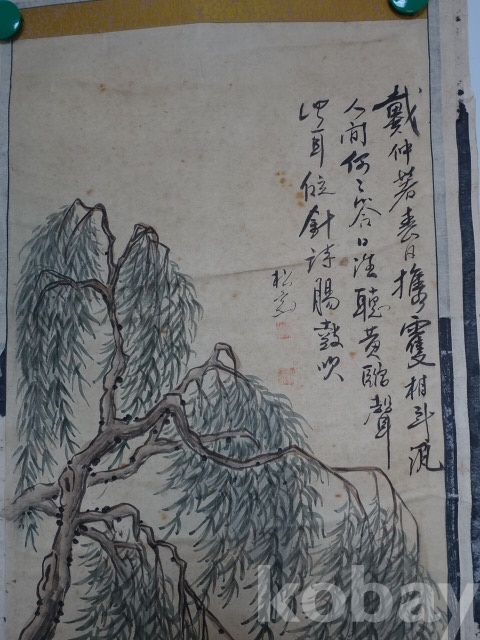 戴仲若春日携雙柑斗酒
人問何之答曰往聽黃鸝聲
此耳俗針詩腸鼓吹
松
kobay